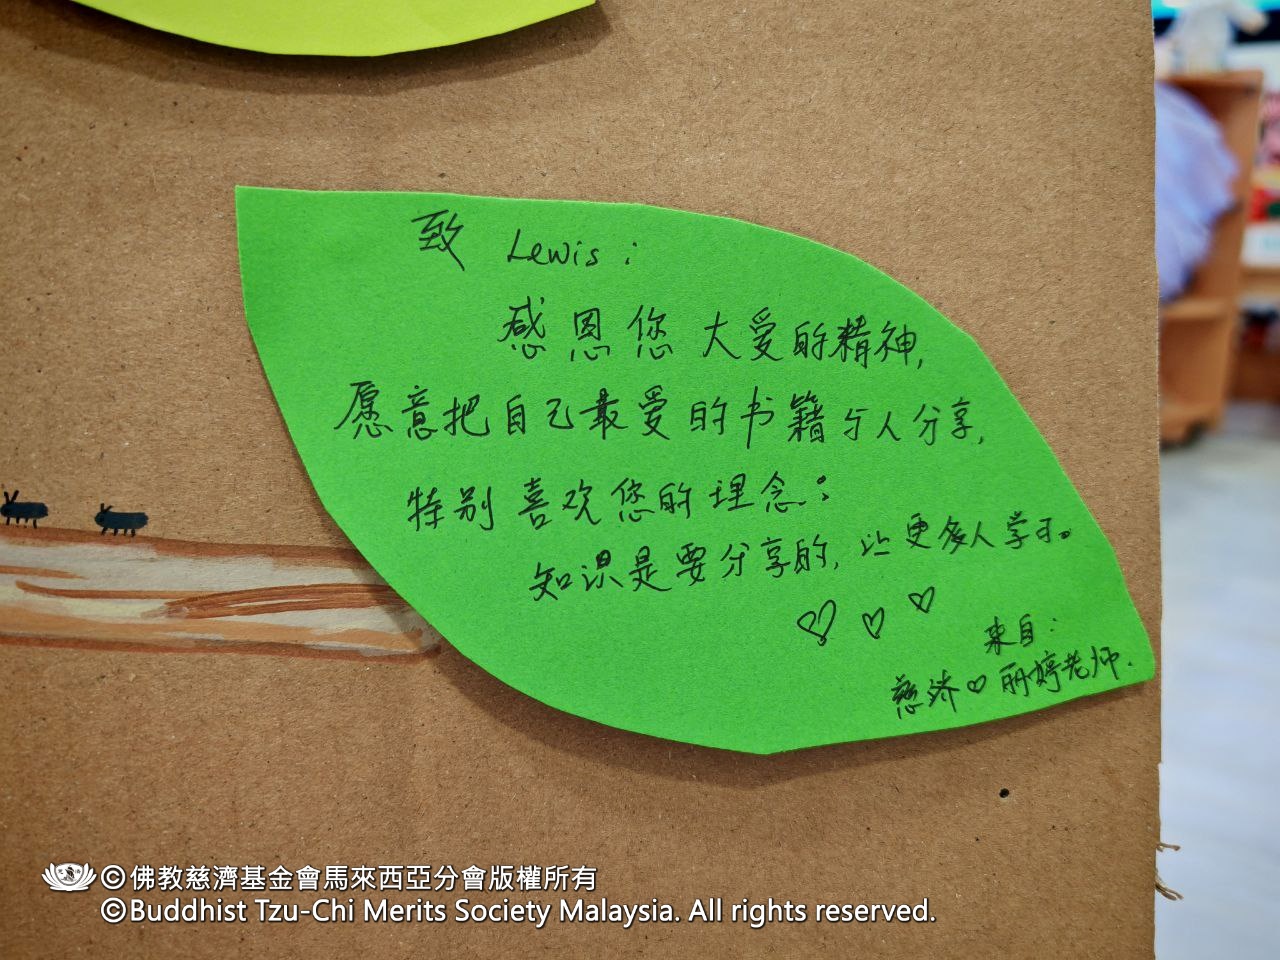 致 Lewis:
感恩您大爱的精神,
愿意把自己最爱的书籍与人分享,
特别喜欢您的理念:
知识是要分享的, 让更多人学习。
♡ ♡ ♡
来自:
慈济♡丽婷老师.
©佛教慈濟基金會馬來西亞分會版權所有
©Buddhist Tzu-Chi Merits Society Malaysia. All rights reserved.